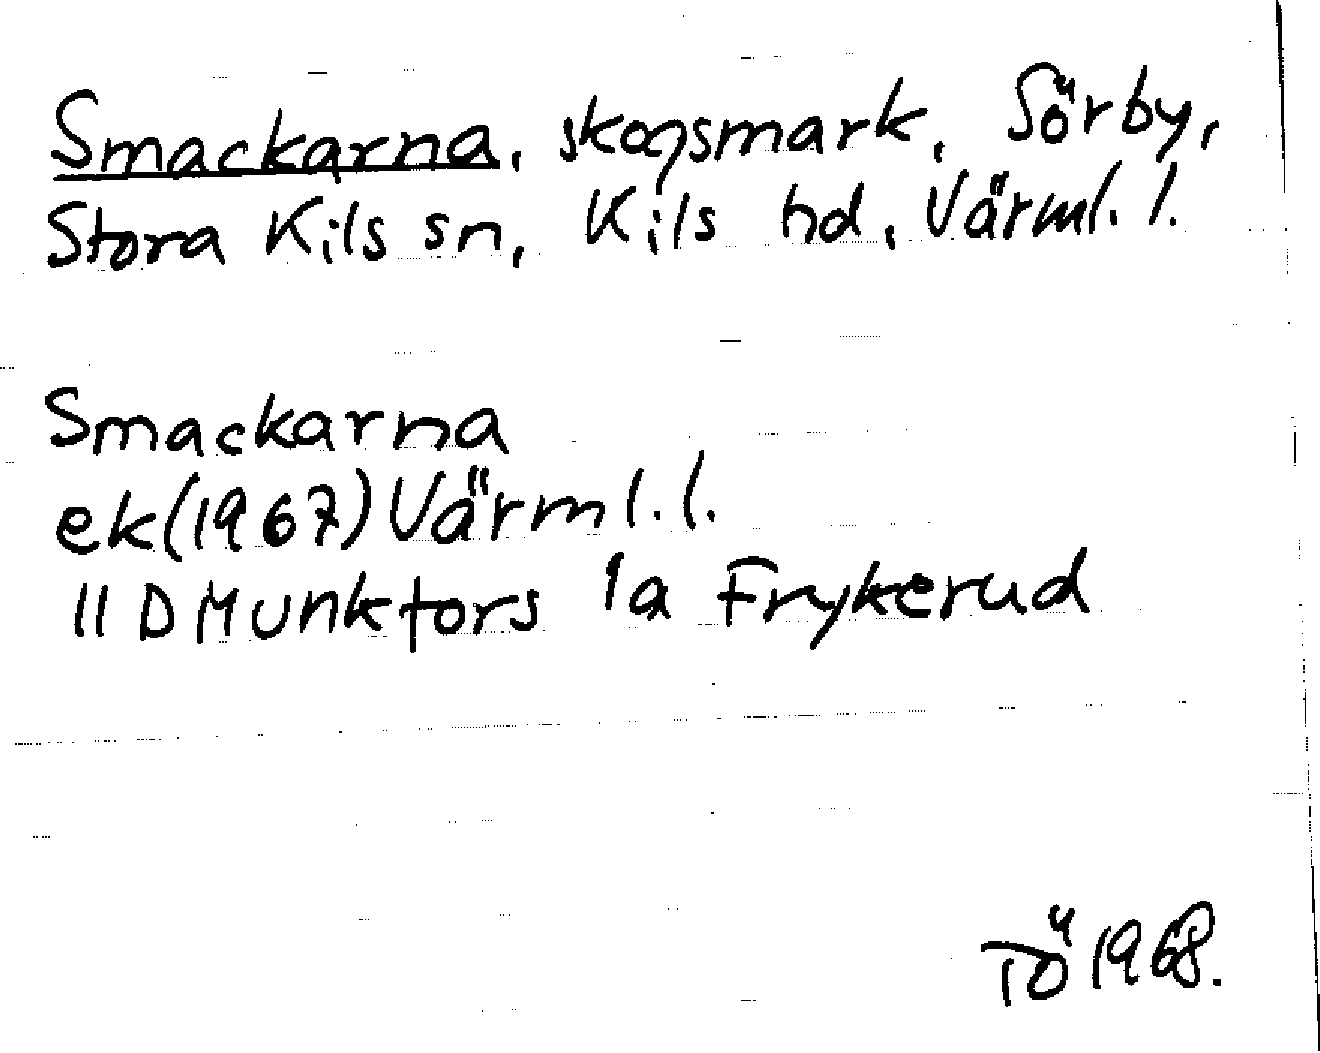 Smackarna, skogsmark, Sörby,
Stora Kils sn, Kils hd, Värml. l.
Smackarna
ek(1967) Värml. l.
11 D Munkfors 1a Frykerud
TÖ 1968.